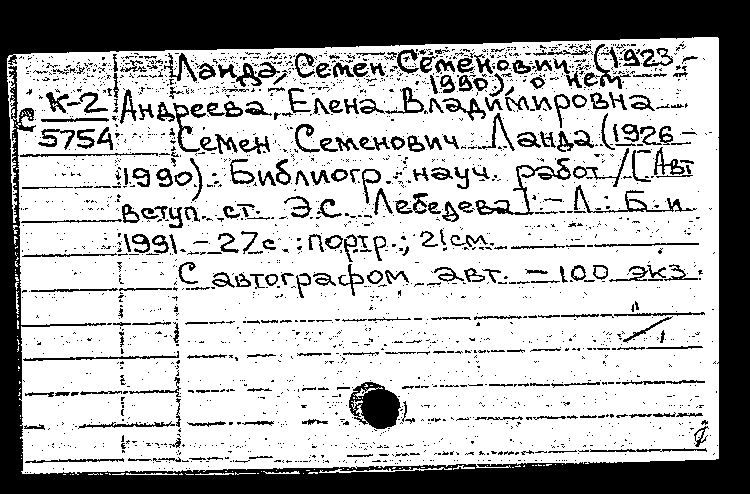 Ланда, Семен Семенович (1923-
1990), о нем
С К-2 Андреева, Елена Владимировна
5754 Семен Семенович Ланда (1926-
1990): Библиогр. науч. работ / [Авт
вступ. ст. Э.С. Лебедева]. - Л.: Б.и
1991. - 27с.: портр.; 21см.
С автографом авт. - 100 экз.